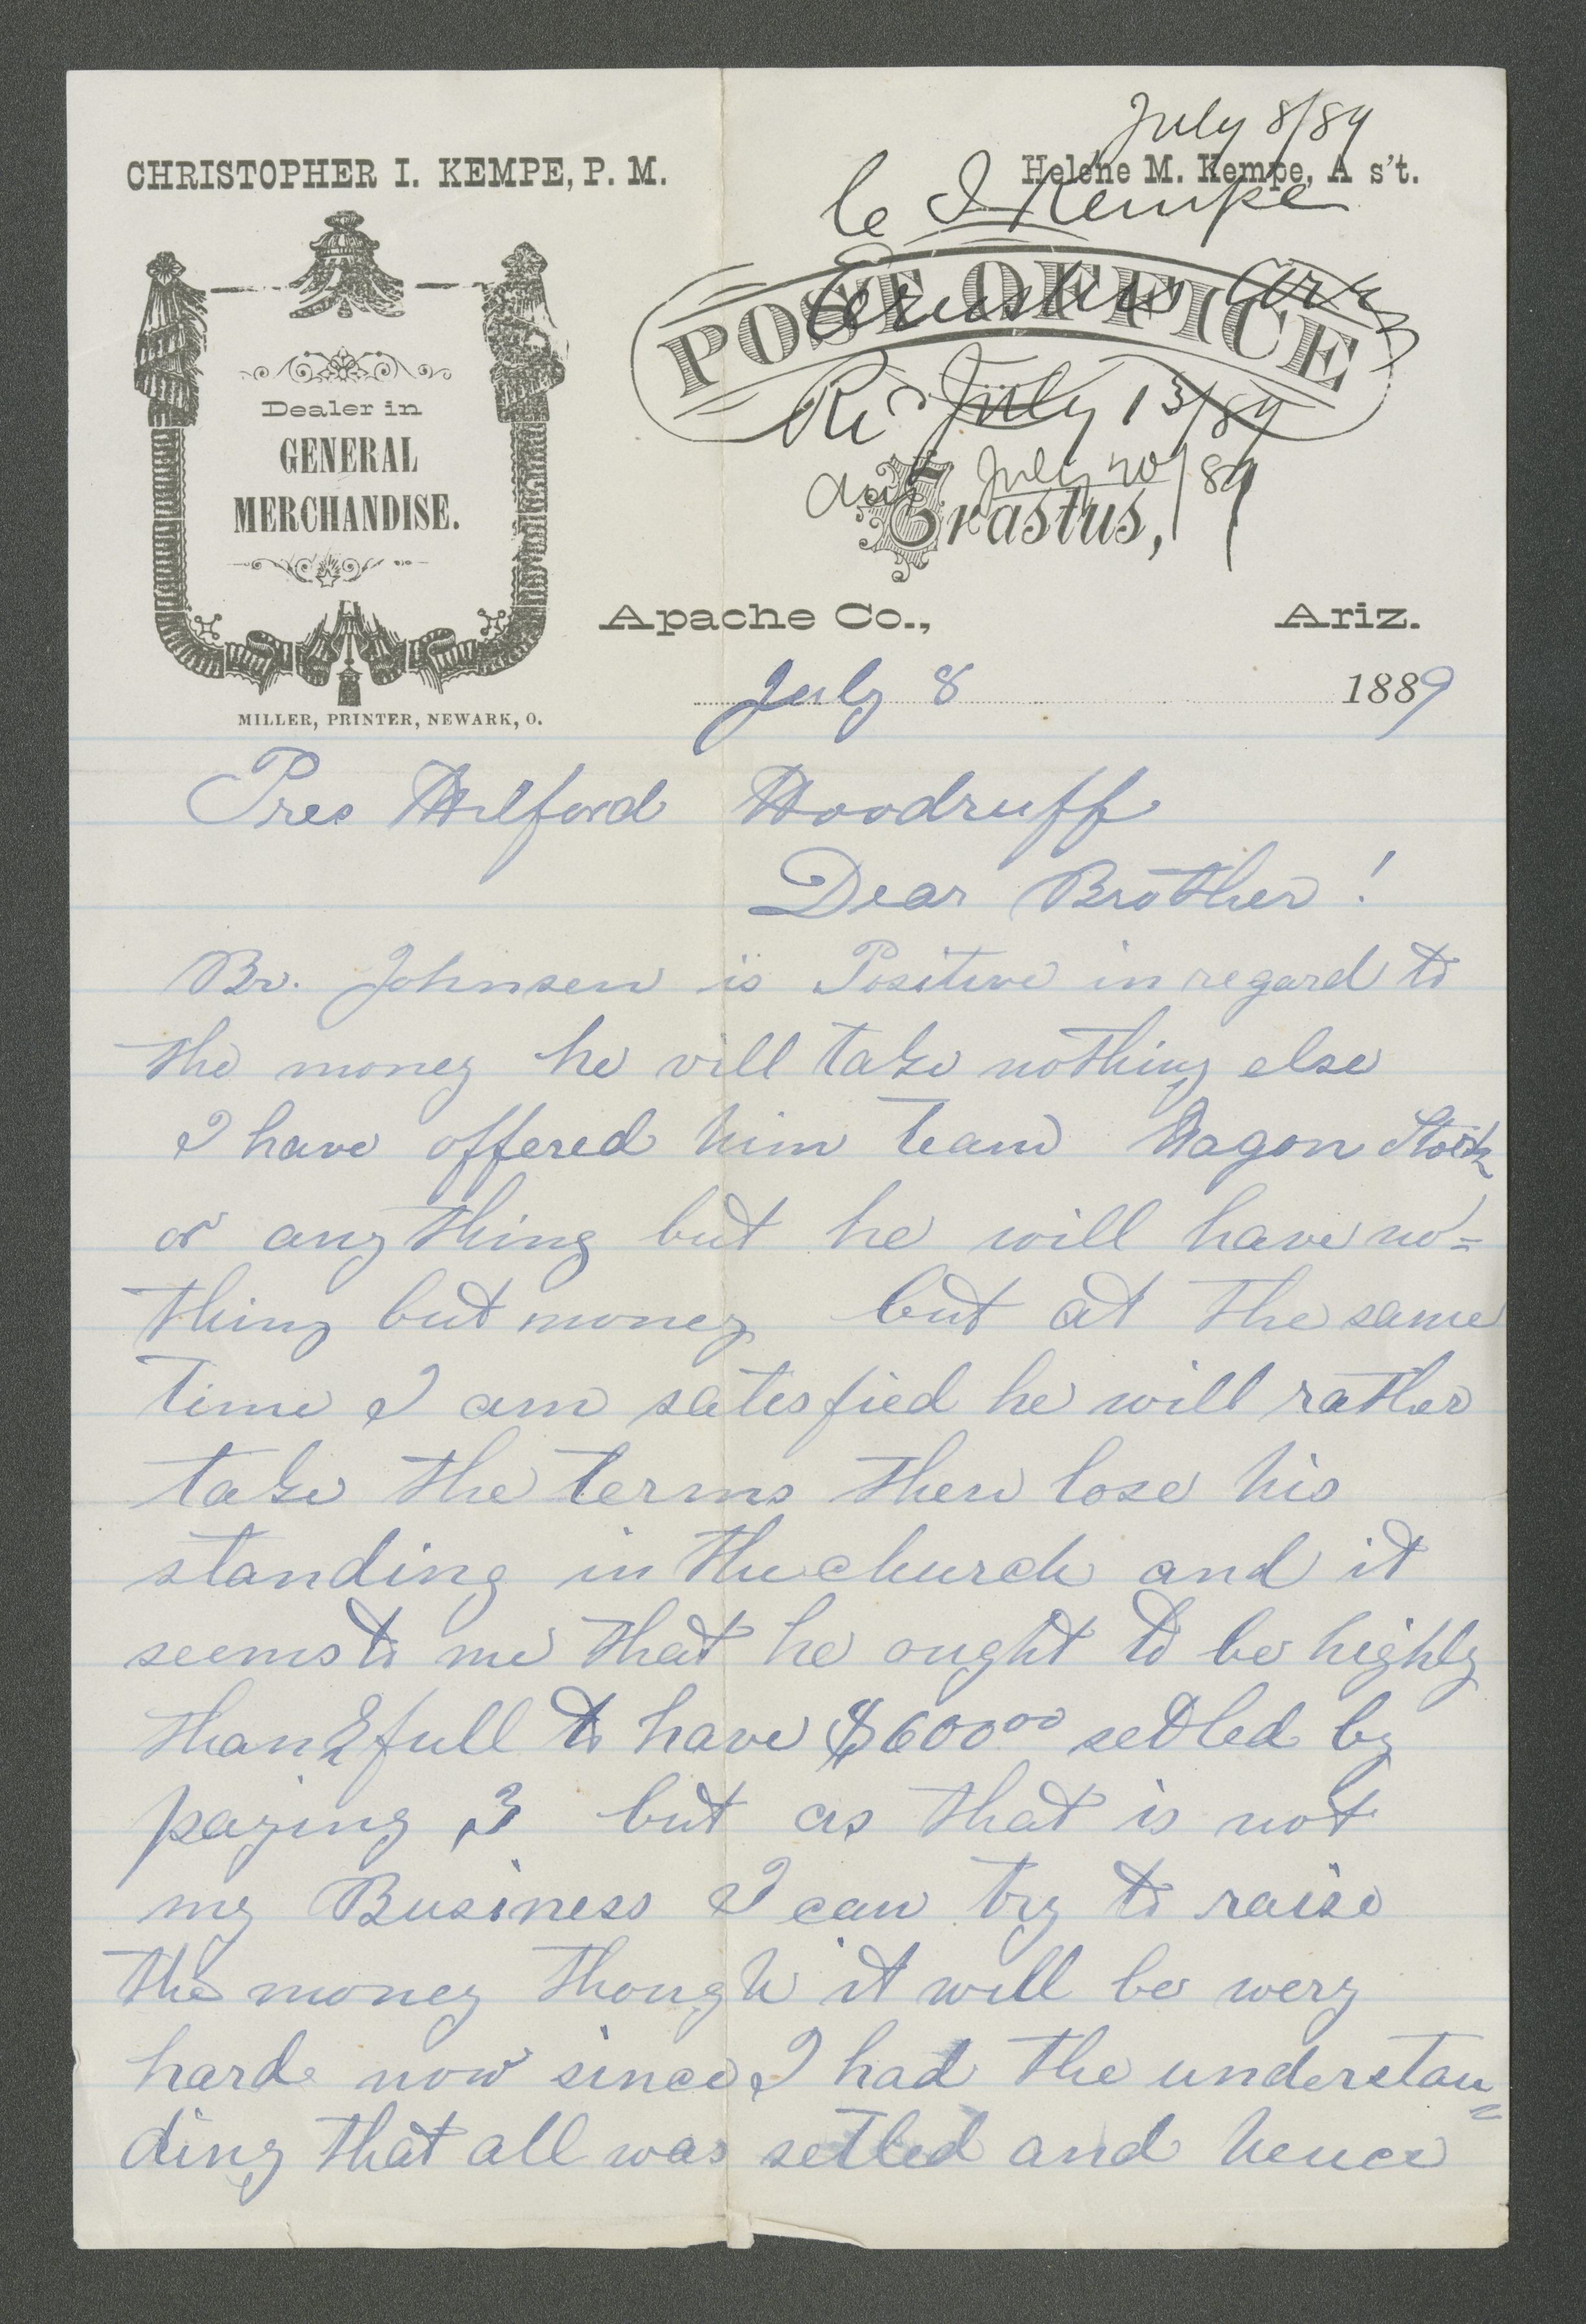 July 8/89
CHRISTOPHER I. KEMPE, P. M.
Helene M. Kempe, A s't.
C I Kempe
POST OFFICE
Erastus Ariz
Rec July 13/89
ans July 20/89
Erastus,
Dealer in
GENERAL
MERCHANDISE.
Apache Co., Ariz.
MILLER, PRINTER, NEWARK, O.
July 8 1889
Pres Wilford Woodruff
Dear Brother!
Br. Johnsen is Positive in regard to
the money he vill take nothing else
I have offered him team Wagon Stock
or anything but he will have no=
thing but money but at the same
time I am satesfied he will rather
take the terms then lose his
standing in the church and it
seems to me that he ought to be highly
thankfull to have $600 00 setled by
paying 3 but as that is not
my Business I can try to raise
the money though it will be wery
hard now since I had the understan=
ding that all was setled and hence